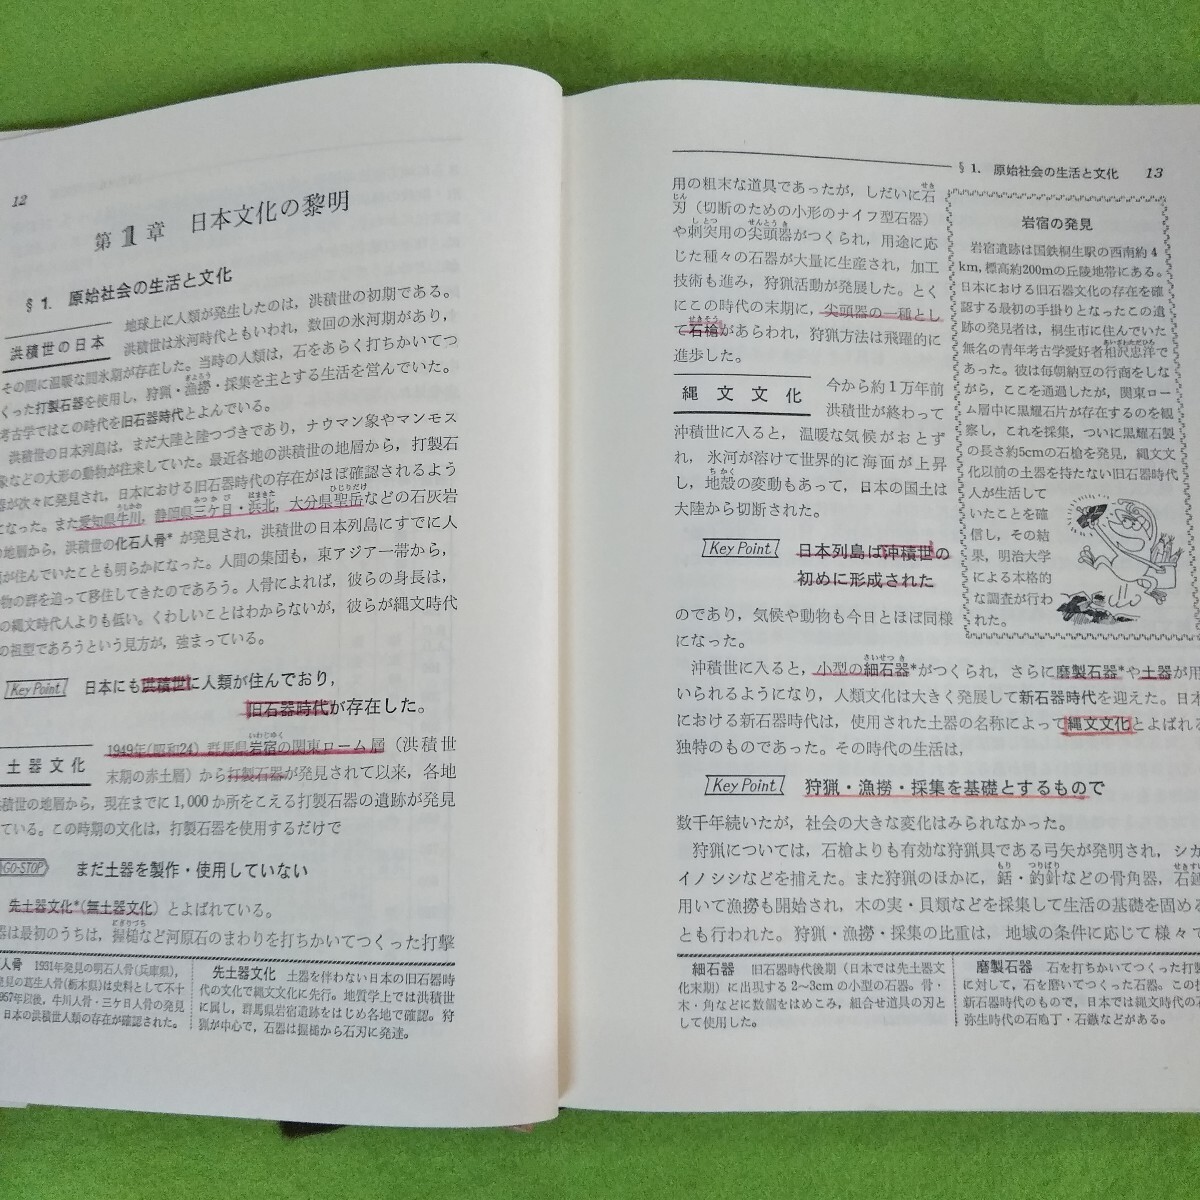 12
第1章 日本文化の黎明
§1. 原始社会の生活と文化
洪積世の日本
地球上に人類が発生したのは，洪積世の初期である。
洪積世は氷河時代ともいわれ，数回の氷河期があり，
その間に温暖な間氷期が存在した。当時の人類は，石をあらく打ちかいてつ
くった打製石器を使用し，狩猟・漁撈・採集を主とする生活を営んでいた。
考古学ではこの時代を旧石器時代とよんでいる。
洪積世の日本列島は，まだ大陸と陸つづきであり，ナウマン象やマンモス
象などの大形の動物が往来していた。最近各地の洪積世の地層から，打製石
器が次々に発見され，日本における旧石器時代の存在がほぼ確認されるよう
になった。また愛知県牛川，静岡県三ケ日・浜北，大分県聖岳などの石灰岩
の地層から，洪積世の化石人骨*が発見され，洪積世の日本列島にすでに人
が住んでいたことも明らかになった。人間の集団も，東アジア一帯から，
物の群を追って移住してきたのであろう。人骨によれば，彼らの身長は，
の縄文時代人よりも低い。くわしいことはわからないが，彼らが縄文時代
の祖型であろうという見方が，強まっている。
Key Point 日本にも洪積世に人類が住んでおり，
旧石器時代が存在した。
土器文化
1949年(昭和24) 群馬県岩宿の関東ローム層（洪積世
末期の赤土層）から打製石器が発見されて以来，各地
洪積世の地層から，現在までに1,000か所をこえる打製石器の遺跡が発見
ている。この時期の文化は，打製石器を使用するだけで
GO-STOP まだ土器を製作・使用していない
先土器文化*(無土器文化) とよばれている。
器は最初のうちは，握槌など河原石のまわりを打ちかいてつくった打撃
人骨 1931年発見の明石人骨(兵庫県)，
発見の葛生人骨(栃木県)は史料として不十
957年以後，牛川人骨・三ケ日人骨の発見
日本の洪積世人類の存在が確認された。
先土器文化 土器を伴わない日本の旧石器時
代の文化で縄文文化に先行。地質学上では洪積世
に属し，群馬県岩宿遺跡をはじめ各地で確認。狩
猟が中心で，石器は握槌から石刃に発達。
§1. 原始社会の生活と文化 13
用の粗末な道具であったが，しだいに石
刃（切断のための小形のナイフ型石器）
や刺突用の尖頭器がつくられ，用途に応
じた種々の石器が大量に生産され，加工
技術も進み，狩猟活動が発展した。とく
にこの時代の末期に，尖頭器の一種とし
て石槍があらわれ，狩猟方法は飛躍的に
進歩した。
縄文文化
今から約1万年前
洪積世が終わって
沖積世に入ると，温暖な気候がおとず
れ，氷河が溶けて世界的に海面が上昇
し，地殻の変動もあって，日本の国土は
大陸から切断された。
Key Point 日本列島は沖積世の
初めに形成された
のであり，気候や動物も今日とほぼ同様
になった。
岩宿の発見
岩宿遺跡は国鉄桐生駅の西南約4
km，標高約200mの丘陵地帯にある。
日本における旧石器文化の存在を確
認する最初の手掛りとなったこの遺
跡の発見者は，桐生市に住んでいた
無名の青年考古学愛好者相沢忠洋で
あった。彼は毎朝納豆の行商をしな
がら，ここを通過したが，関東ロー
ム層中に黒耀石片が存在するのを観
察し，これを採集，ついに黒耀石製
の長さ約5cmの石槍を発見，縄文文
化以前の土器を持たない旧石器時代
人が生活して
いたことを確
信し，その結
果，明治大学
による本格的
な調査が行わ
れた。
沖積世に入ると，小型の細石器*がつくられ，さらに磨製石器*や土器が用
いられるようになり，人類文化は大きく発展して新石器時代を迎えた。日本
における新石器時代は，使用された土器の名称によって縄文文化とよばれる
独特のものであった。その時代の生活は，
Key Point 狩猟・漁撈・採集を基礎とするもので
数千年続いたが，社会の大きな変化はみられなかった。
狩猟については，石槍よりも有効な狩猟具である弓矢が発明され，シカ
イノシシなどを捕えた。また狩猟のほかに，銛・釣針などの骨角器，石錘
用いて漁撈も開始され，木の実・貝類などを採集して生活の基礎を固める
とも行われた。狩猟・漁撈・採集の比重は，地域の条件に応じて様々で
細石器 旧石器時代後期（日本では先土器文
化末期）に出現する2～3cmの小型の石器。骨・
木・角などに数個をはめこみ，組合せ道具の刃と
して使用した。
磨製石器 石を打ちかいてつくった打製
に対して，石を磨いてつくった石器。この技
新石器時代のもので，日本では縄文時代の石
弥生時代の石庖丁・石鏃などがある。